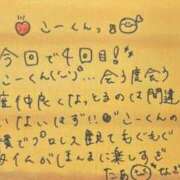 こーくんっ
今回で4回目!
こーくん(˙-˙)... 会う度会う
度仲良くなっとるのは間違
いないはず!! こーくんの
横でプロレス観てもぐもぐ
タイムがほんまに楽しすぎ
たぁ